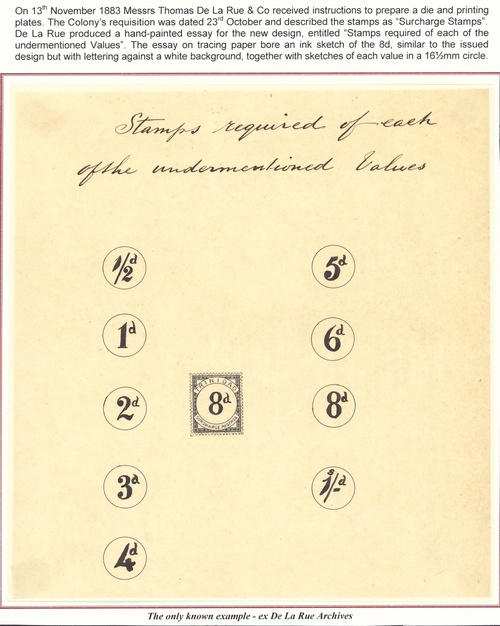 On 13th November 1883 Messrs Thomas De La Rue & Co received instructions to prepare a die and printing
plates. The Colony's requisition was dated 23rd October and described the stamps as "Surcharge Stamps".
De La Rue produced a hand-painted essay for the new design, entitled "Stamps required of each of the
undermentioned Values". The essay on tracing paper bore an ink sketch of the 8d, similar to the issued
design but with lettering against a white background, together with sketches of each value in a 16½mm circle.
Stamps required of each
of the undermentioned Values
1/2d
1d
2d
3d
4d
TRINIDAD
8d
SURCHARGE POSTAGE
5d
6d
8d
1s/-d
The only known example - ex De La Rue Archives